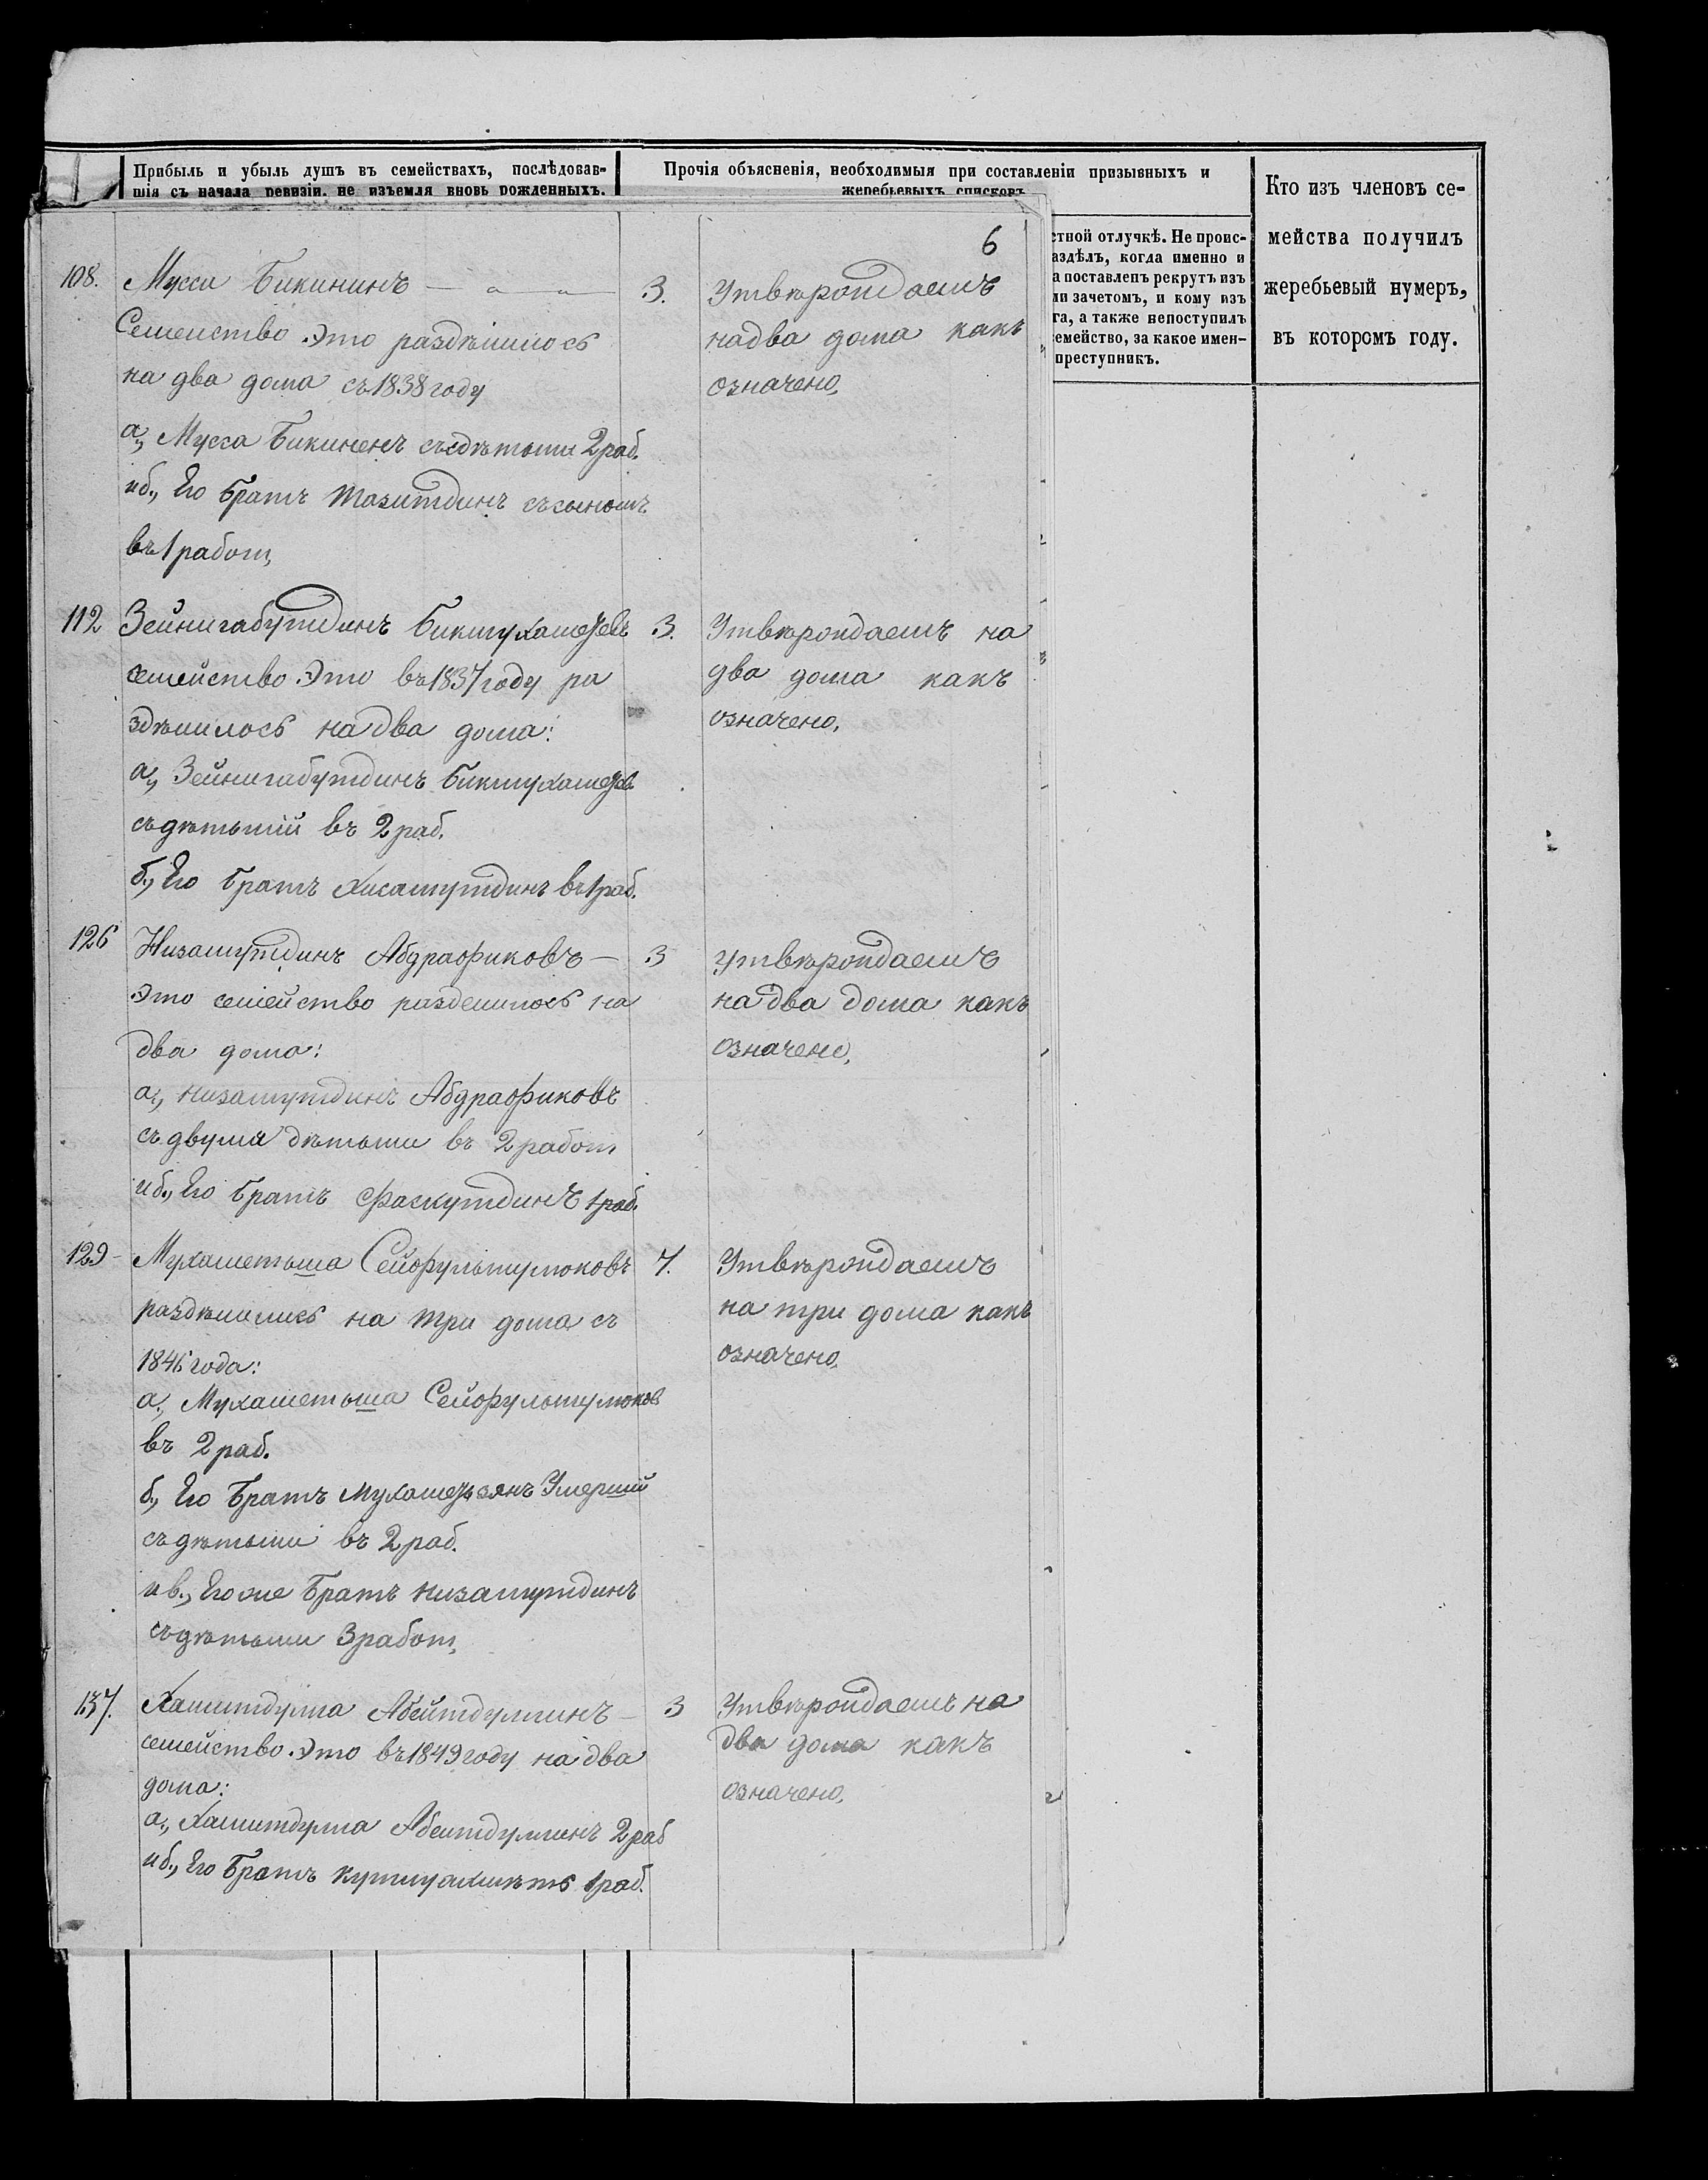 Прибыль и убыль душъ въ семействахъ, послѣдовав-
шія съ начала ревизіи, не изъемля вновь рожденныхъ.
Прочія объясненія, необходимыя при составленіи призывныхъ и
жеребьевыхъ списковъ
Кто изъ членовъ се-
мейства получилъ
жеребьевый нумеръ,
въ которомъ году.
стной отлучкѣ. Не проис-
аздѣлъ, когда именно и
а поставленъ рекрутъ изъ
ли зачетомъ, и кому изъ
га, а также непоступилъ
емейство, за какое имен-
преступникъ.
6
108. Мусси Бикининъ — " — " — 3.
Семейство это раздѣлилось
на два дома съ 1838 году
а, Мусса Бикиненъ съ дѣтьми 2 раб.
и б., Его братъ Тазитдинъ съ сыномъ
въ 1 работ,
Утвѣрждаемъ
на два дома какъ
означено,
112 Зейнигабутдинъ Бикмухаметевъ 3.
семейство это въ 1837 году ра
здѣлилось на два дома:
а, Зейнигабутдинъ Бикмухаметев
съ дѣтьмий въ 2 раб.
б., Его братъ Хисамутдинъ въ 1 раб.
Утвѣрждаемъ на
два дома какъ
означено,
126 Низамутдинъ Абдрафиковъ — 3
Это семейство разделилось на
два дома:
а., Низамутдинъ Абдрафиковъ
съ двумя дѣтьми въ 2 работ
и б., Его братъ Фаскутдинъ 1 раб.
Утвѣрждаемъ
на два дома какъ
означено,
129 — Мухаметьша Сейфульмулюковъ 7.
раздѣлились на три дома съ
1846 года:
а., Мухаметьша Сейфульмулюков
въ 2 раб.
б., Его братъ Мухаметьзянъ Умерший
съ дѣтьми въ 2 раб.
и в., Его же братъ Низамутдинъ
съ дѣтьми 3 работ,
Утвѣрждаемъ
на три дома какъ
означено,
137. Хамитдулла Абейтдуллинъ — 3
семейство это въ 1849 году на два
дома:
а., Хамитдулла Абеитдуллинъ 2 раб
и б., Его братъ 1 раб.
Утвѣрждаемъ на
два дома какъ
означено,